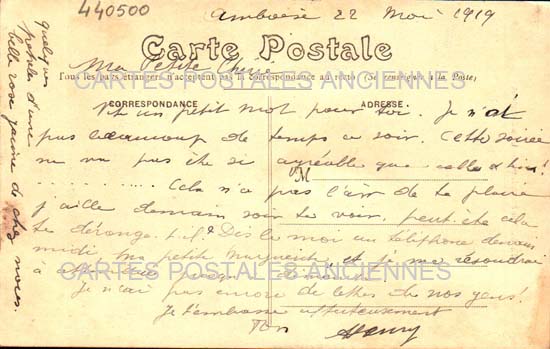 440500
Amboise 22 Mai 1919
Carte Postale
Ma Petite Chérie
Tous les pays étrangers n'acceptent pas la correspondance au recto (Se renseigner à la Poste)
CARTES POSTALES ANCIENNES
CORRESPONDANCE
ADRESSE
un petit mot pour toi. Je n'ai
pas beaucoup de temps ce soir. Cette soirée
ne va pas être si agréable que celle d'hier!
M
.......... Cela n'a pas l'air de te plaire
j'aille demain soir te voir, peut-être cela
te dérange t-il? Dis le moi au téléphone demain
midi, ma petite et je me résoudrai
à
CARTES POSTALES ANCIENNES
Je n'ai pas encore de lettre de nos gens!
Je t'embrasse affectueusement
Ton Henry
quelques
petale d'une
belle rose jaune de chez nous.